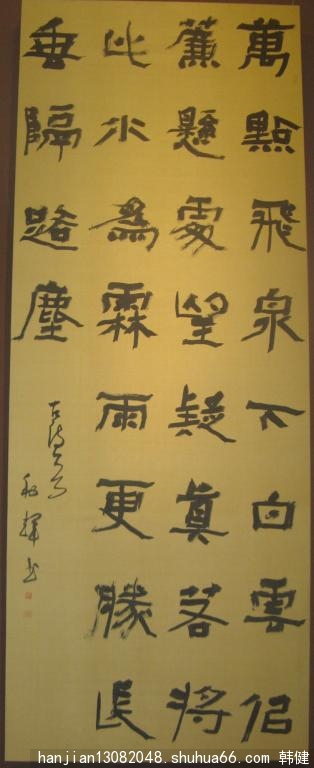 萬點飛泉下白雲佀
簾懸處望疑真若將
此水為霖雨更勝長
垂隔路塵
古诗一首
輝书
hanjian13082048.shuhua66.com 韩健